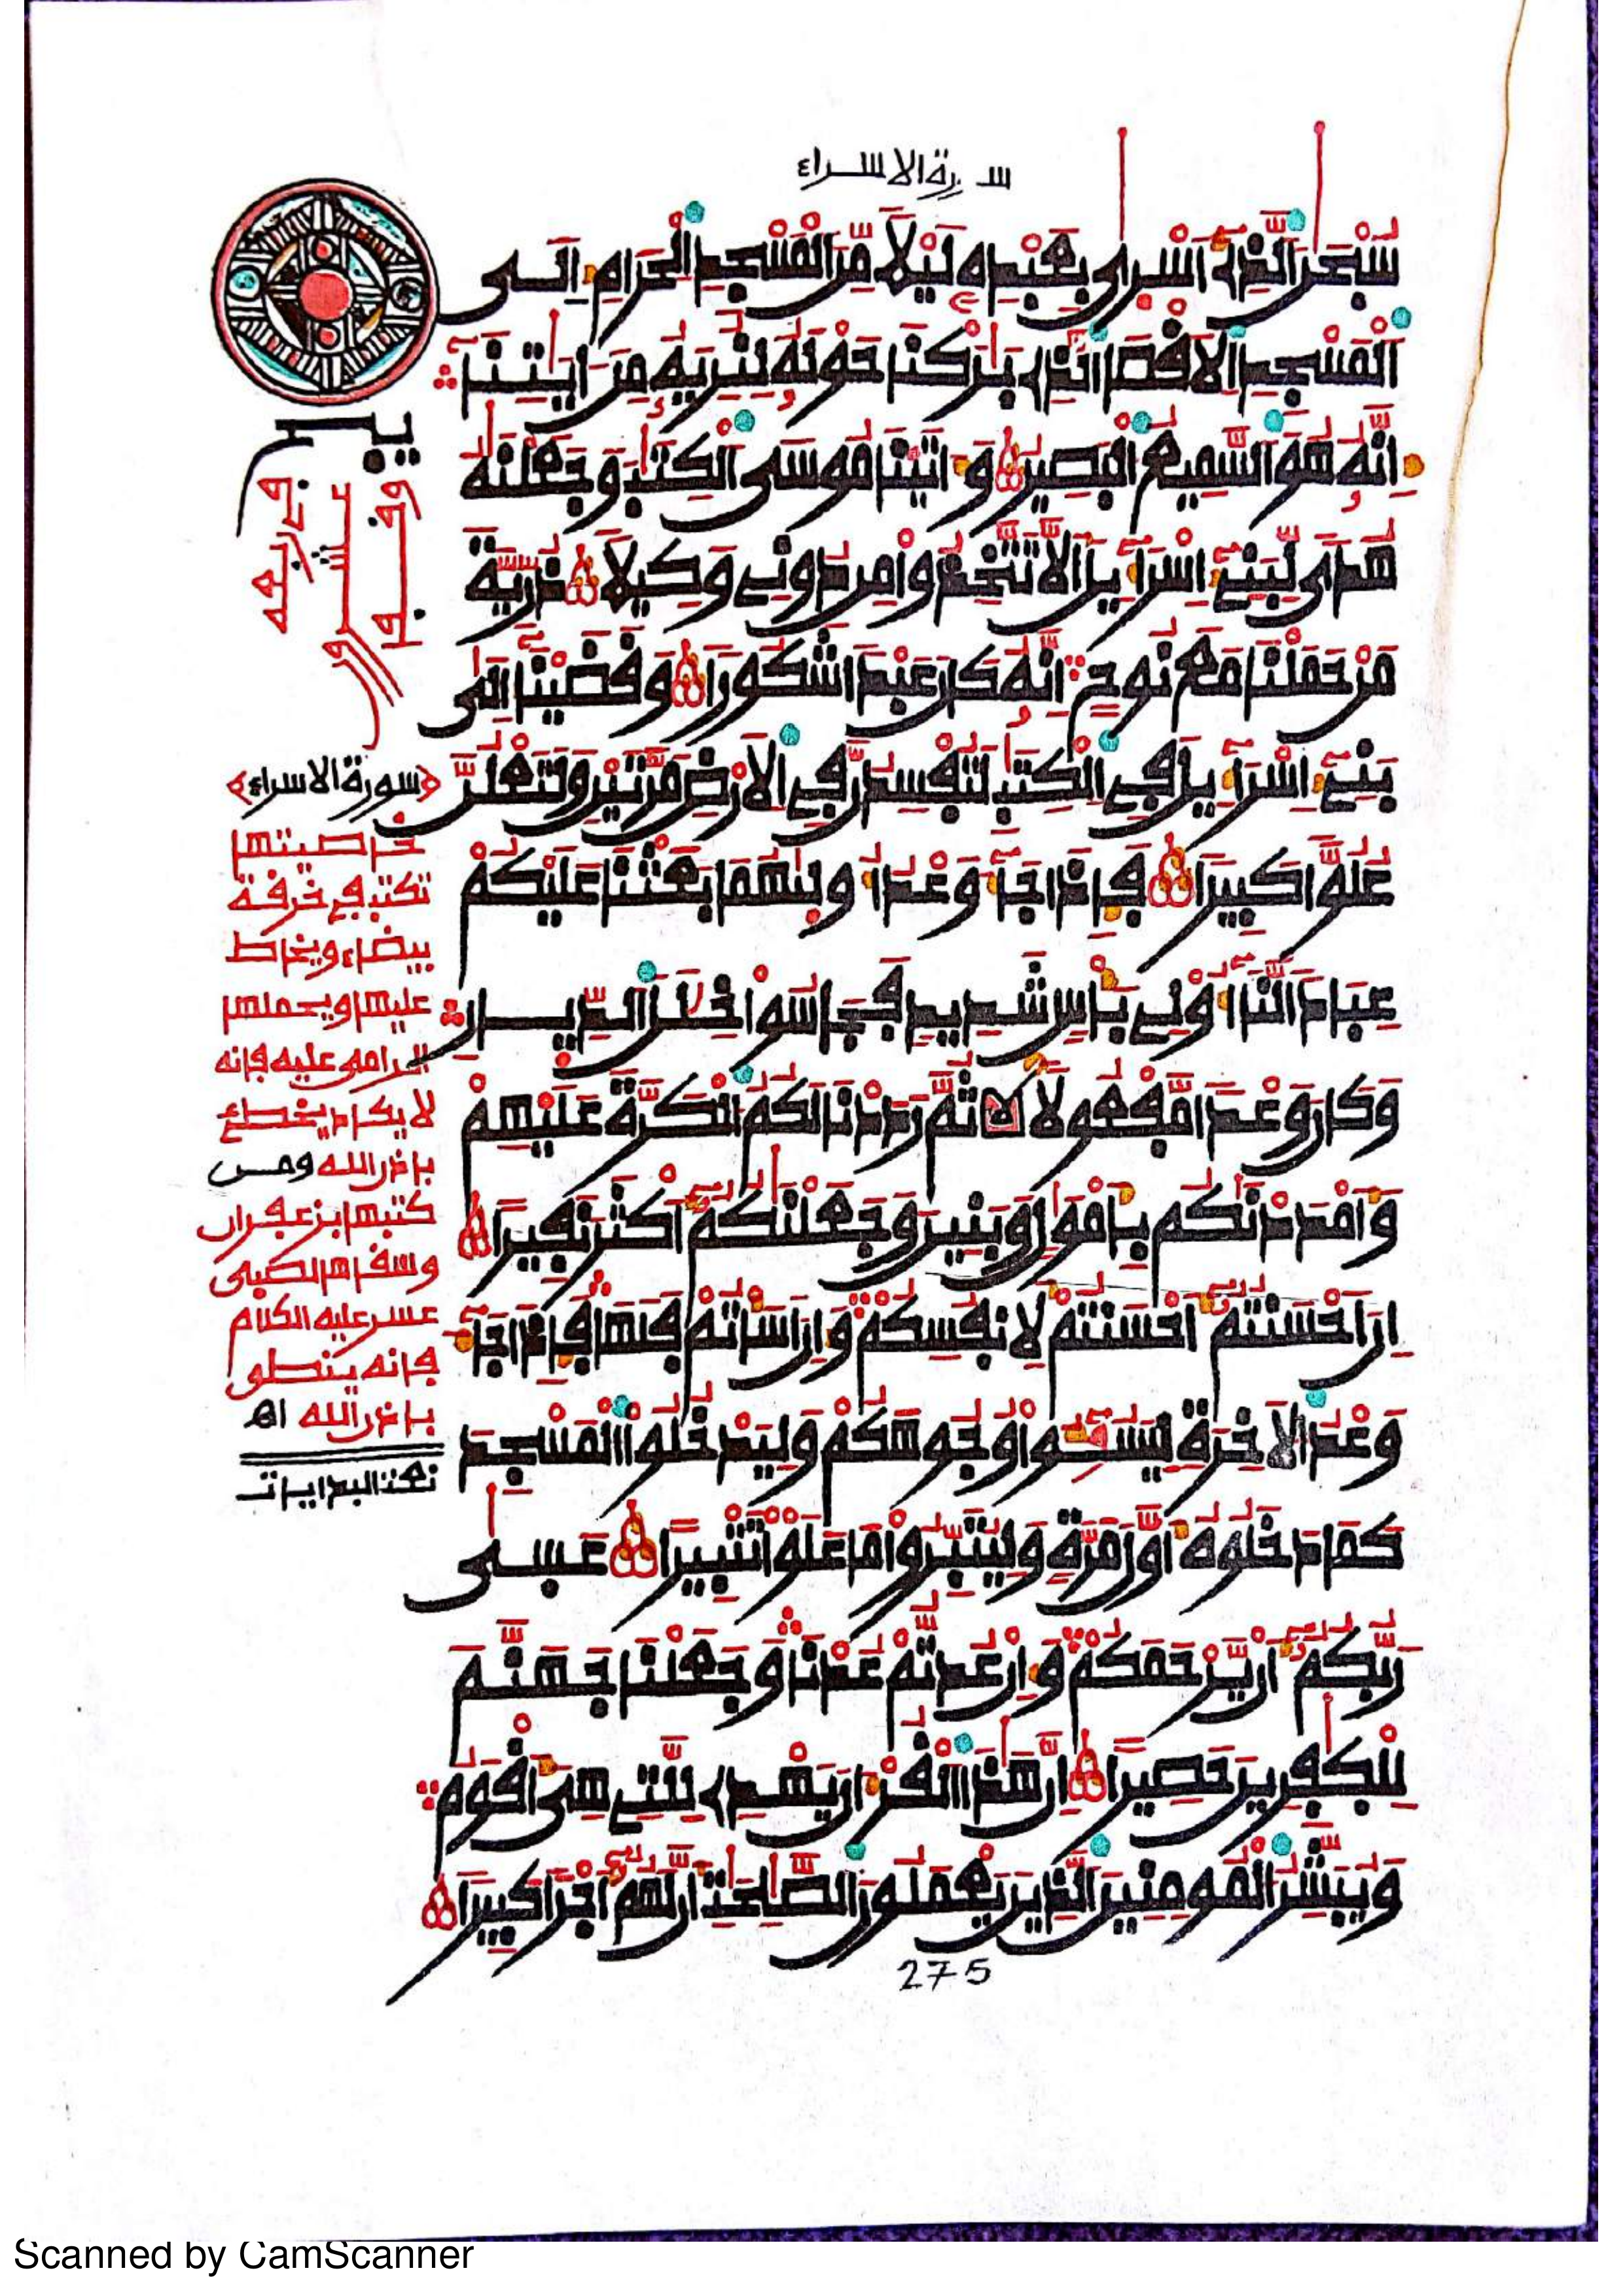 سورة الاسراء
سُبْحَٰنَ ٱلذِےٓ أَسْر۪ىٰ بِعَبْدِهِۦ لَيْلًا مِّنَ ٱلْمَسْجِدِ ٱلْحَرَامِ إِلَى
ٱلْمَسْجِدِ ٱلَاقْصَا ٱلذِے بَٰرَكْنَا حَوْلَهُۥ لِنُرِيَهُۥ مِنَ اٰيَٰتِنَآ
إِنَّهُۥ هُوَ ٱلسَّمِيعُ ٱلْبَصِيرُ وَءَاتَيْنَا مُوسَى ٱلْكِتَٰبَ وَجَعَلْنَٰهُ
هُدًى لِّبَنِےٓ إِسْرَآءِيلَ أَلَّا تَتَّخِذُوا۟ مِن دُونِے وَكِيلًا ذُرِّيَّةَ
مَنْ حَمَلْنَا مَعَ نُوحٍ إِنَّهُۥ كَانَ عَبْدًا شَكُورًا وَقَضَيْنَآ إِلَىٰ
بَنِےٓ إِسْرَآءِيلَ فِے ٱلْكِتَٰبِ لَتُفْسِدُنَّ فِے ٱلَارْضِ مَرَّتَيْنِ وَلَتَعْلُنَّ
عُلُوًّا كَبِيرًا فَإِذَا جَآءَ وَعْدُ أُولَىٰهُمَا بَعَثْنَا عَلَيْكُمْ
عِبَادًا لَّنَآ أُو۟لِے بَأْسٍ شَدِيدٍ فَجَاسُوا۟ خِلَٰلَ ٱلدِّيَارِ
وَكَانَ وَعْدًا مَّفْعُولًا ثُمَّ رَدَدْنَا لَكُمُ ٱلْكَرَّةَ عَلَيْهِمْ
وَأَمْدَدْنَٰكُم بِأَمْوَٰلٍ وَبَنِينَ وَجَعَلْنَٰكُمُۥٓ أَكْثَرَ نَفِيرًا
إِنَ اَحْسَنتُمُۥٓ أَحْسَنتُمْ لِأَنفُسِكُمْ وَإِنَ اَسَأْتُمْ فَلَهَا فَإِذَا جَآءَ
وَعْدُ ٱلَاخِرَةِ لِيَسُـۥٓـُٔوا۟ وُجُوهَكُمْ وَلِيَدْخُلُوا۟ ٱلْمَسْجِدَ
كَمَا دَخَلُوهُ أَوَّلَ مَرَّةٍ وَلِيُتَبِّرُوا۟ مَا عَلَوْا۟ تَتْبِيرًا عَسَىٰ
رَبُّكُمُۥٓ أَنْ يَّرْحَمَكُمْ وَإِنْ عُدتُّمْ عُدْنَا وَجَعَلْنَا جَهَنَّمَ
لِلْكَٰفِرِينَ حَصِيرًا إِنَّ هَٰذَا ٱلْقُرْءَانَ يَهْدِے لِلَّتِے هِىَ أَقْوَمُ
وَيُبَشِّرُ ٱلْمُومِنِينَ ٱلذِينَ يَعْمَلُونَ ٱلصَّٰلِحَٰتِ أَنَّ لَهُمُۥٓ أَجْرًا كَبِيرًا
275
﴿سورة الاسراء﴾
خاصيتها
تكتب في خرقة
بيضاء ويخاط
عليها ويحملها
الرامى عليه فإنه
لا يكاد يخطئ
بإذن الله ومن
كتبها بزعفران
وسقاها الصبى
عسر عليه الكلام
فإنه ينطق
بإذن الله اهـ
نعت البدايات
Scanned by CamScanner